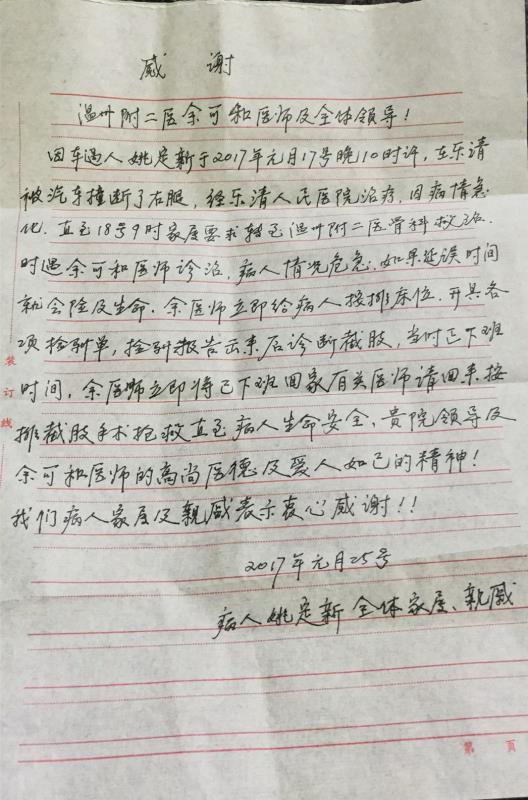 感 谢
温州附二医余可和医师及全体领导！
因车遇人姚定新于2017年元月17号晚10时许，在乐清
被汽车撞断了右腿，经乐清人民医院治疗，因病情急
化，直至18号9时家属要求转至温州附二医骨科救治．
时遇余可和医师诊治，病人情况危急，如果延误时间
就会险及生命．余医师立即给病人按排床位，开具各
项检验单，检验报告出来后诊断截肢，当时已下班
时间，余医师立即将已下班回家有关医师请回来按
排截肢手术抢救直至病人生命安全，贵院领导及
余可和医师的高尚医德及爱人如己的精神！
我们病人家属及亲戚表示衷心感谢！！
2017年元月25号
病人姚定新全体家属、亲戚
装订线
第 页